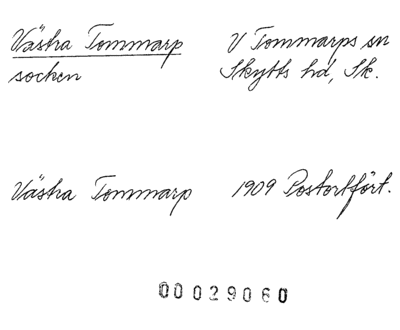 Västra Tommarp
socken
V Tommarps sn
Skytts hd, Sk.
Västra Tommarp
1909 Postortfört.
00029060